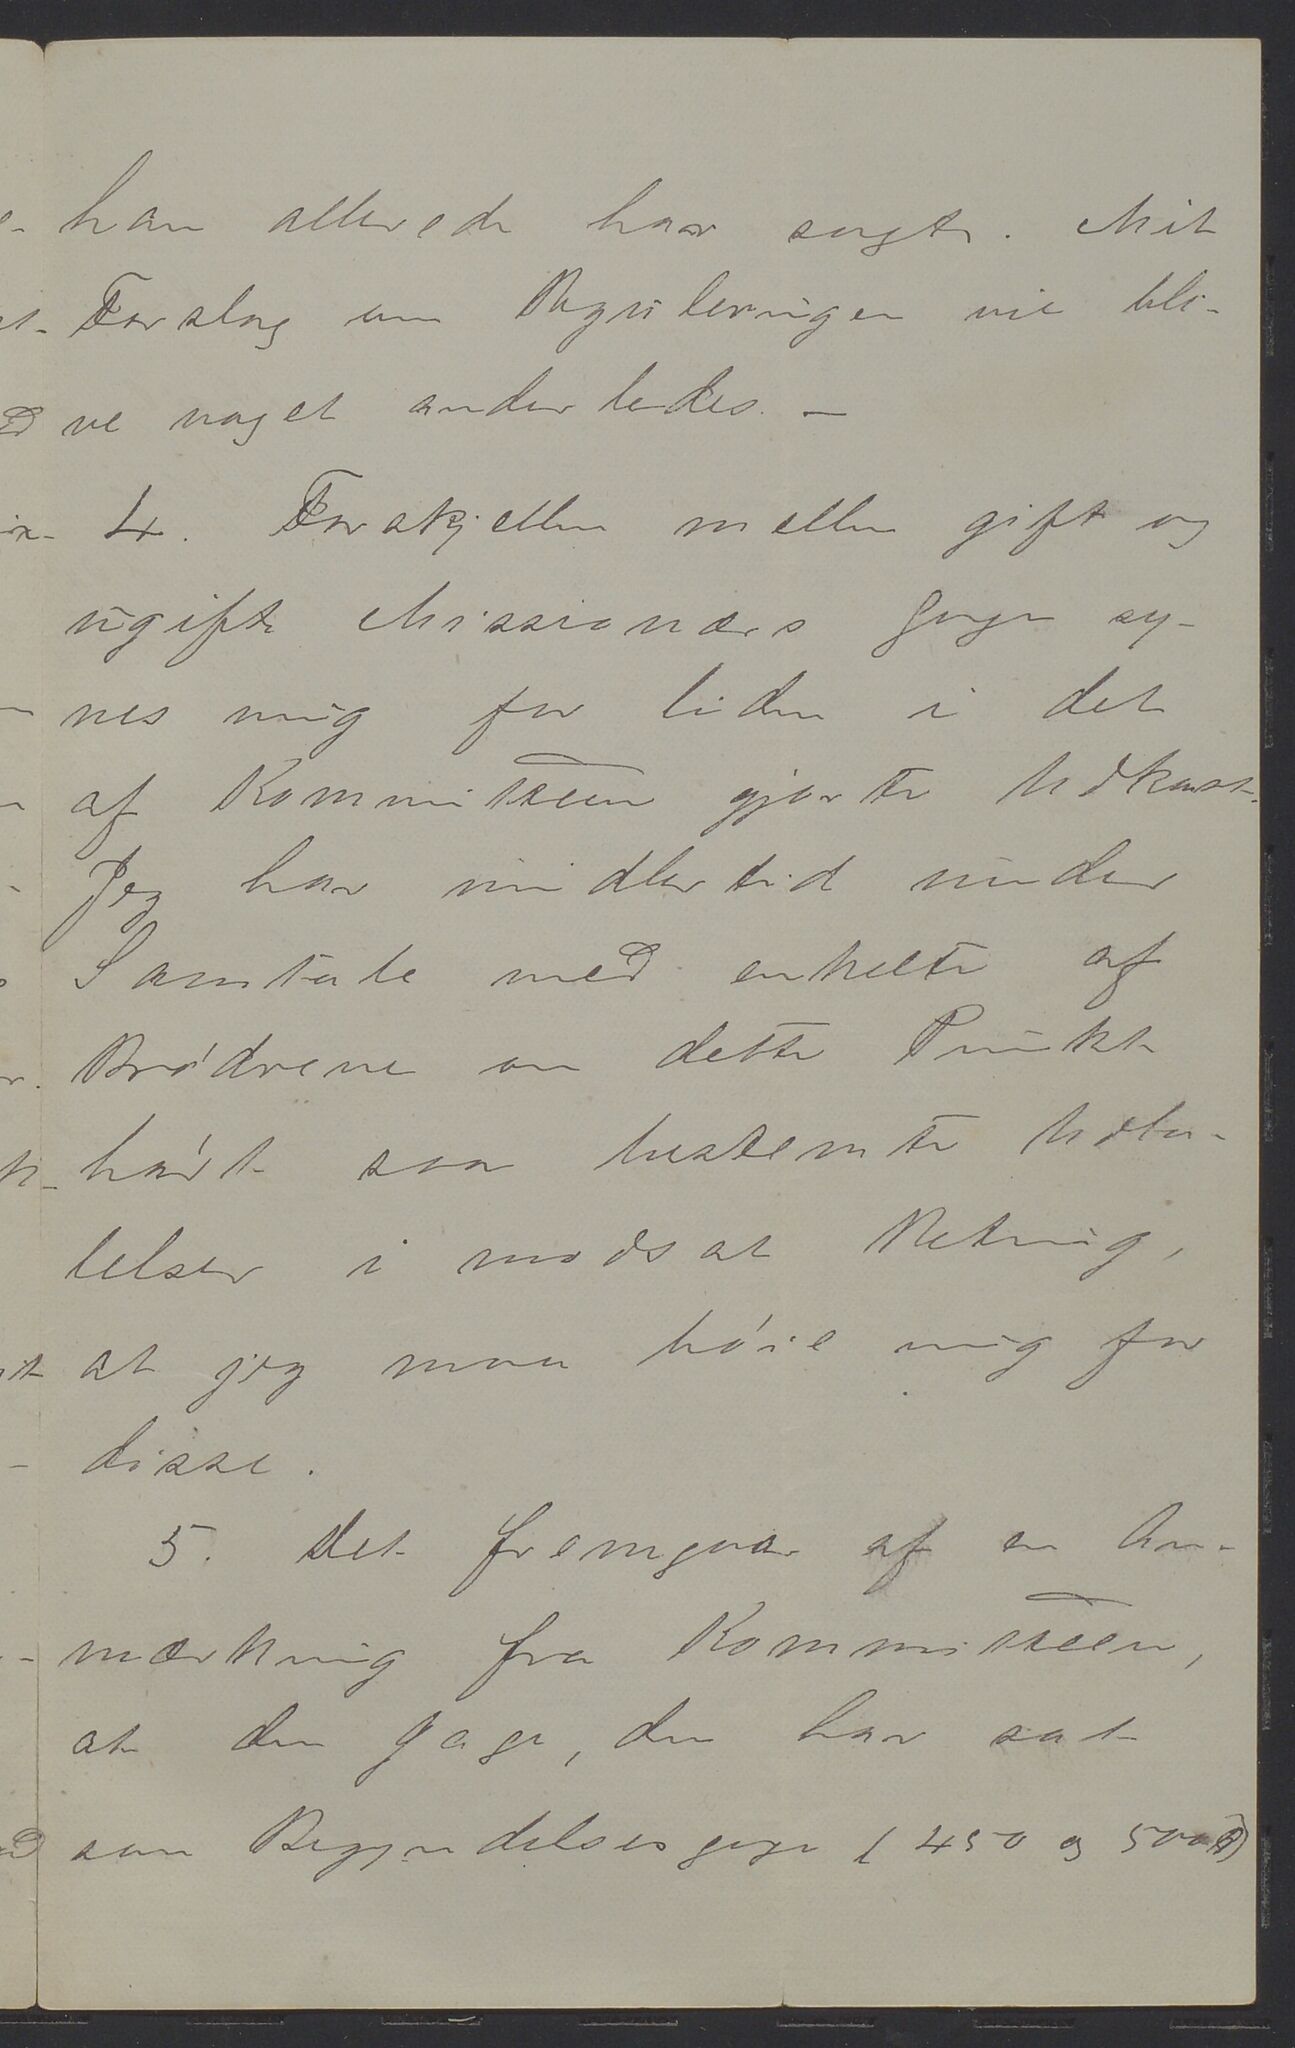 han allerede har sagt. Mit
Forslag om Reguleringen vil bli-
ve noget anderledes. –
4. Forskjellen mellem gift og
ugift Missionærs Gage sy-
nes mig for liden i det
af Kommitteen gjorte Udkast.
Jeg har imidlertid under
Samtale med enkelte af
Brødrene om dette Punkt
hørt saa bestemte Udta-
lelser i modsat Retning,
at jeg maa bøie mig for
disse.
5. Det fremgaar af en An-
mærkning fra Kommitteen,
at den Gage, den har sat
som Begyndelsesgage (450 og 500